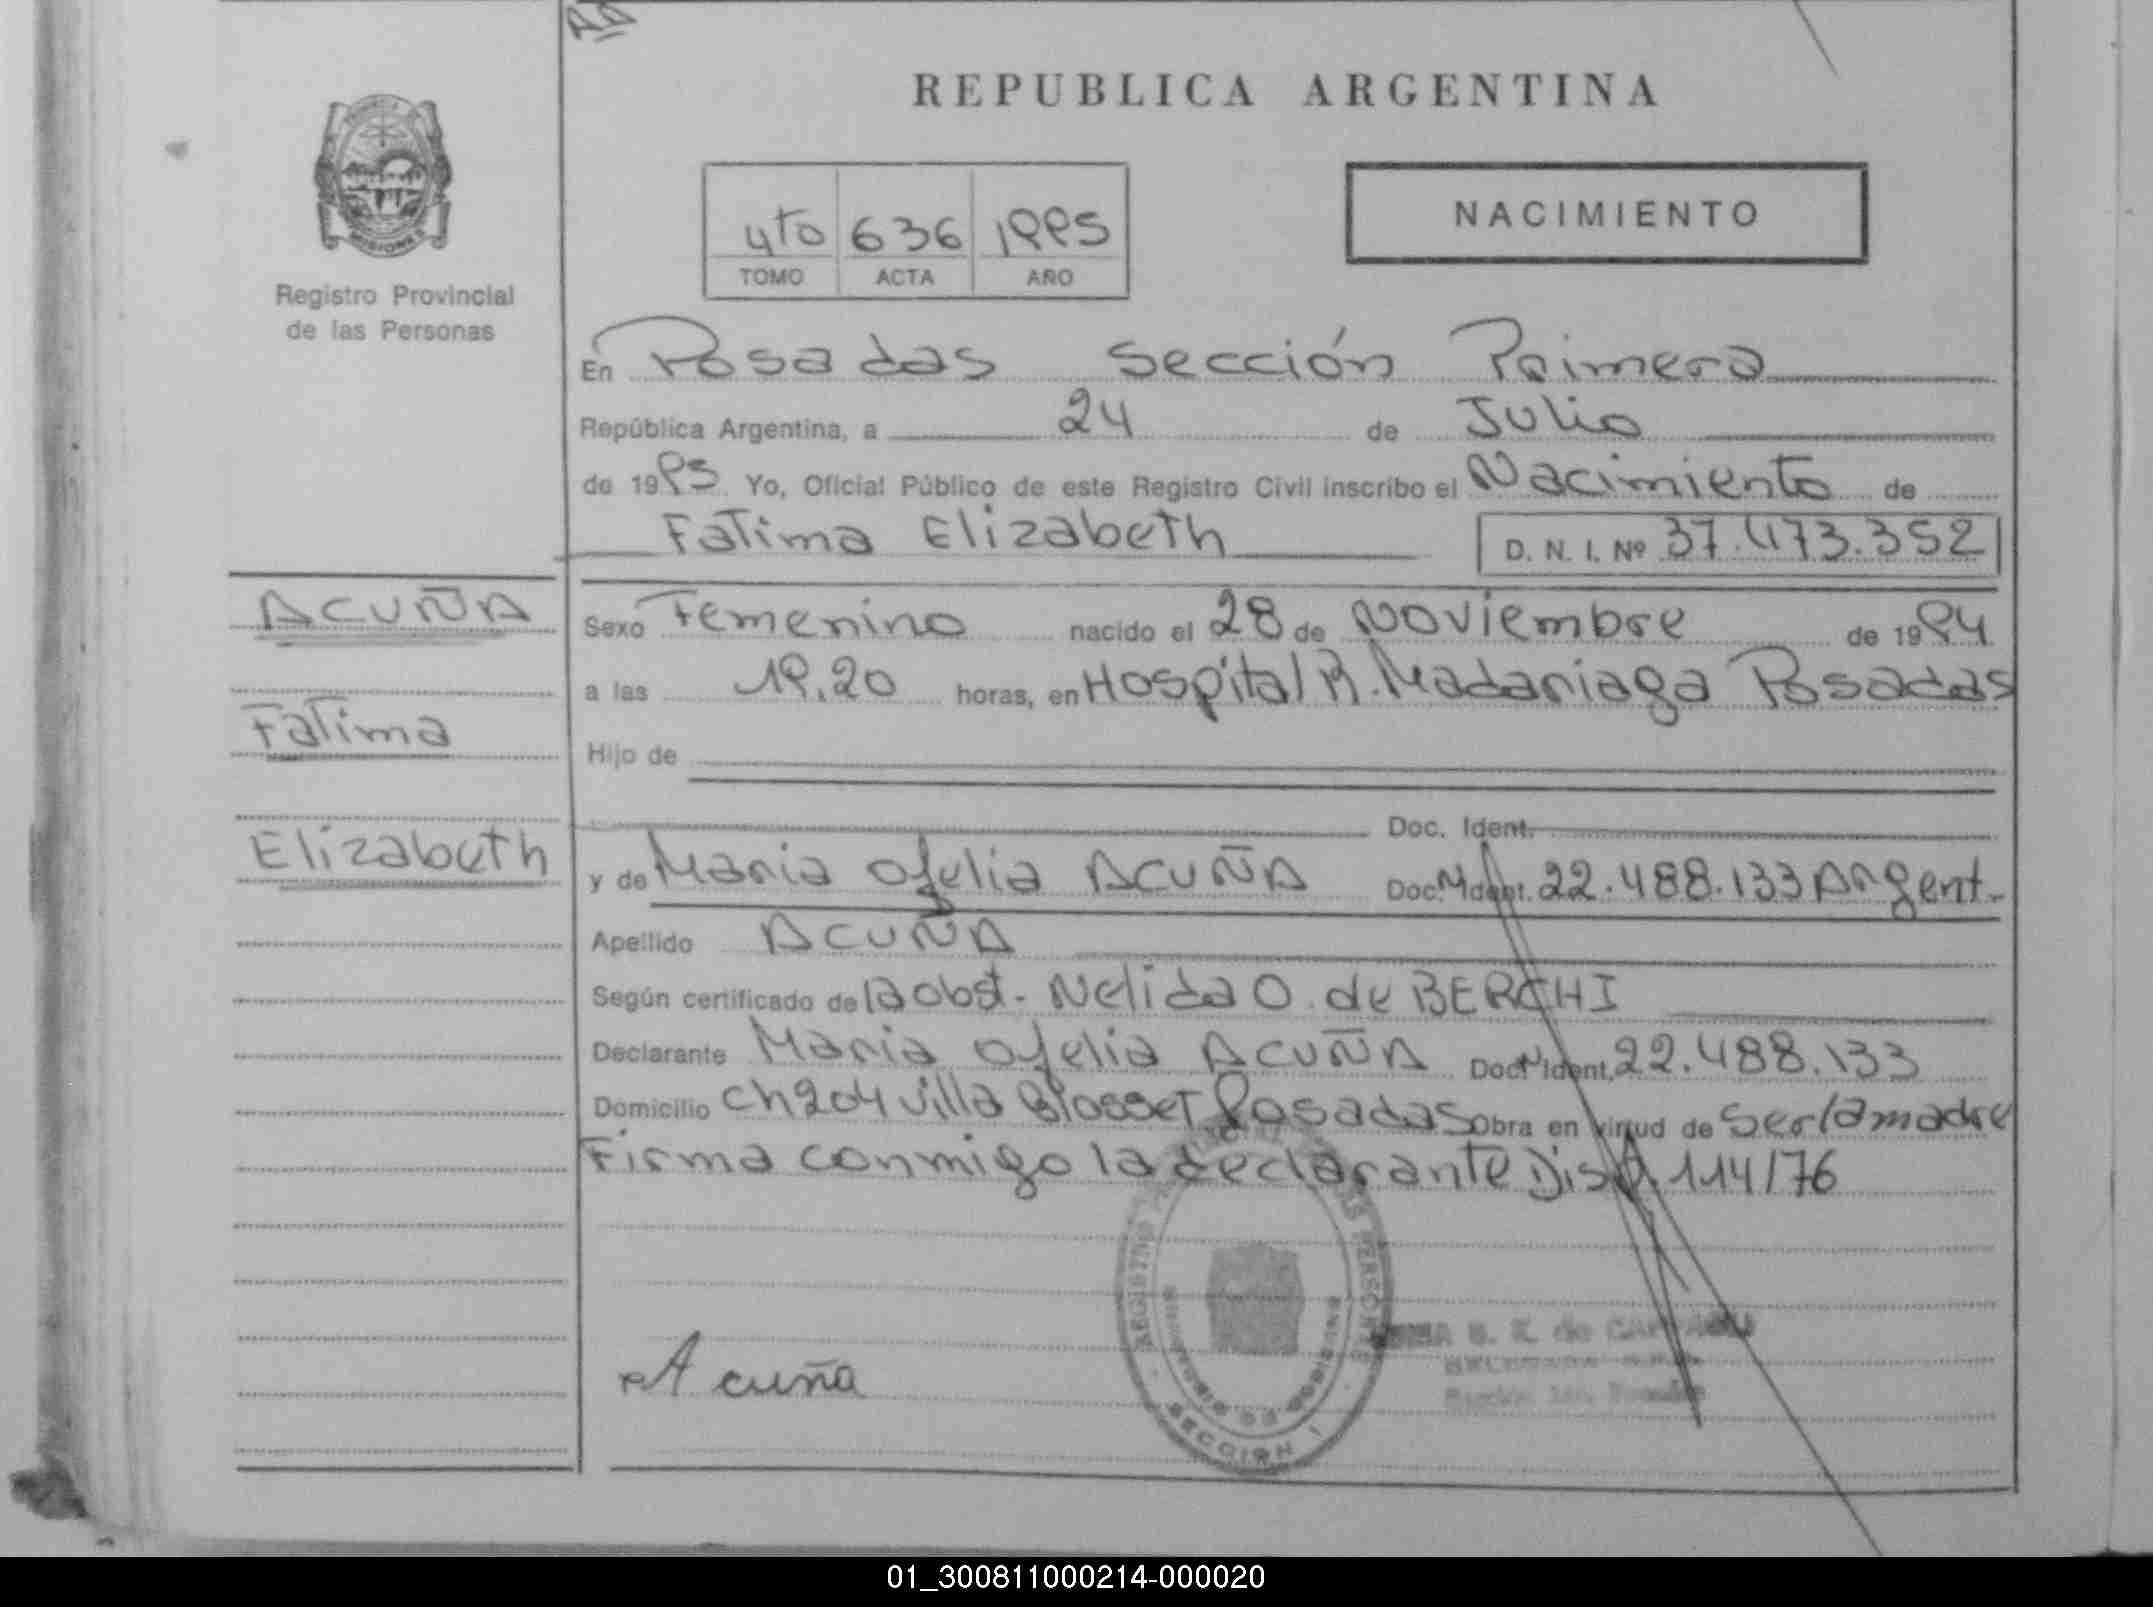 REPUBLICA ARGENTINA
MISIONES
Registro Provincial
de las Personas
4to 636 1995
TOMO ACTA AÑO
NACIMIENTO
En Posadas Sección Primera
República Argentina, a 24 de Julio
de 1995 Yo, Oficial Público de este Registro Civil inscribo el Nacimiento de
Fatima Elizabeth D. N. I. Nº 37.473.352
ACUÑA
Fatima
Elizabeth
Sexo Femenino nacido el 28 de Noviembre de 1994
a las 19.20 horas, en Hospital R. Madariaga Posadas
Hijo de
Doc. Ident.
y de Maria Ofelia ACUÑA Doc. Ident. 22.488.133 Argent.
Apellido ACUÑA
Según certificado de la Obst. Nelida O. de BERCHI
Declarante Maria Ofelia ACUÑA Doc. Ident. 22.488.133
Domicilio ch 204 villa Blosset Posadas Obra en virtud de Ser la madre
Firma conmigo la declarante Disp. 114/76
Acuña
REGISTRO PERSONAS
SECCION 1
01_300811000214-000020